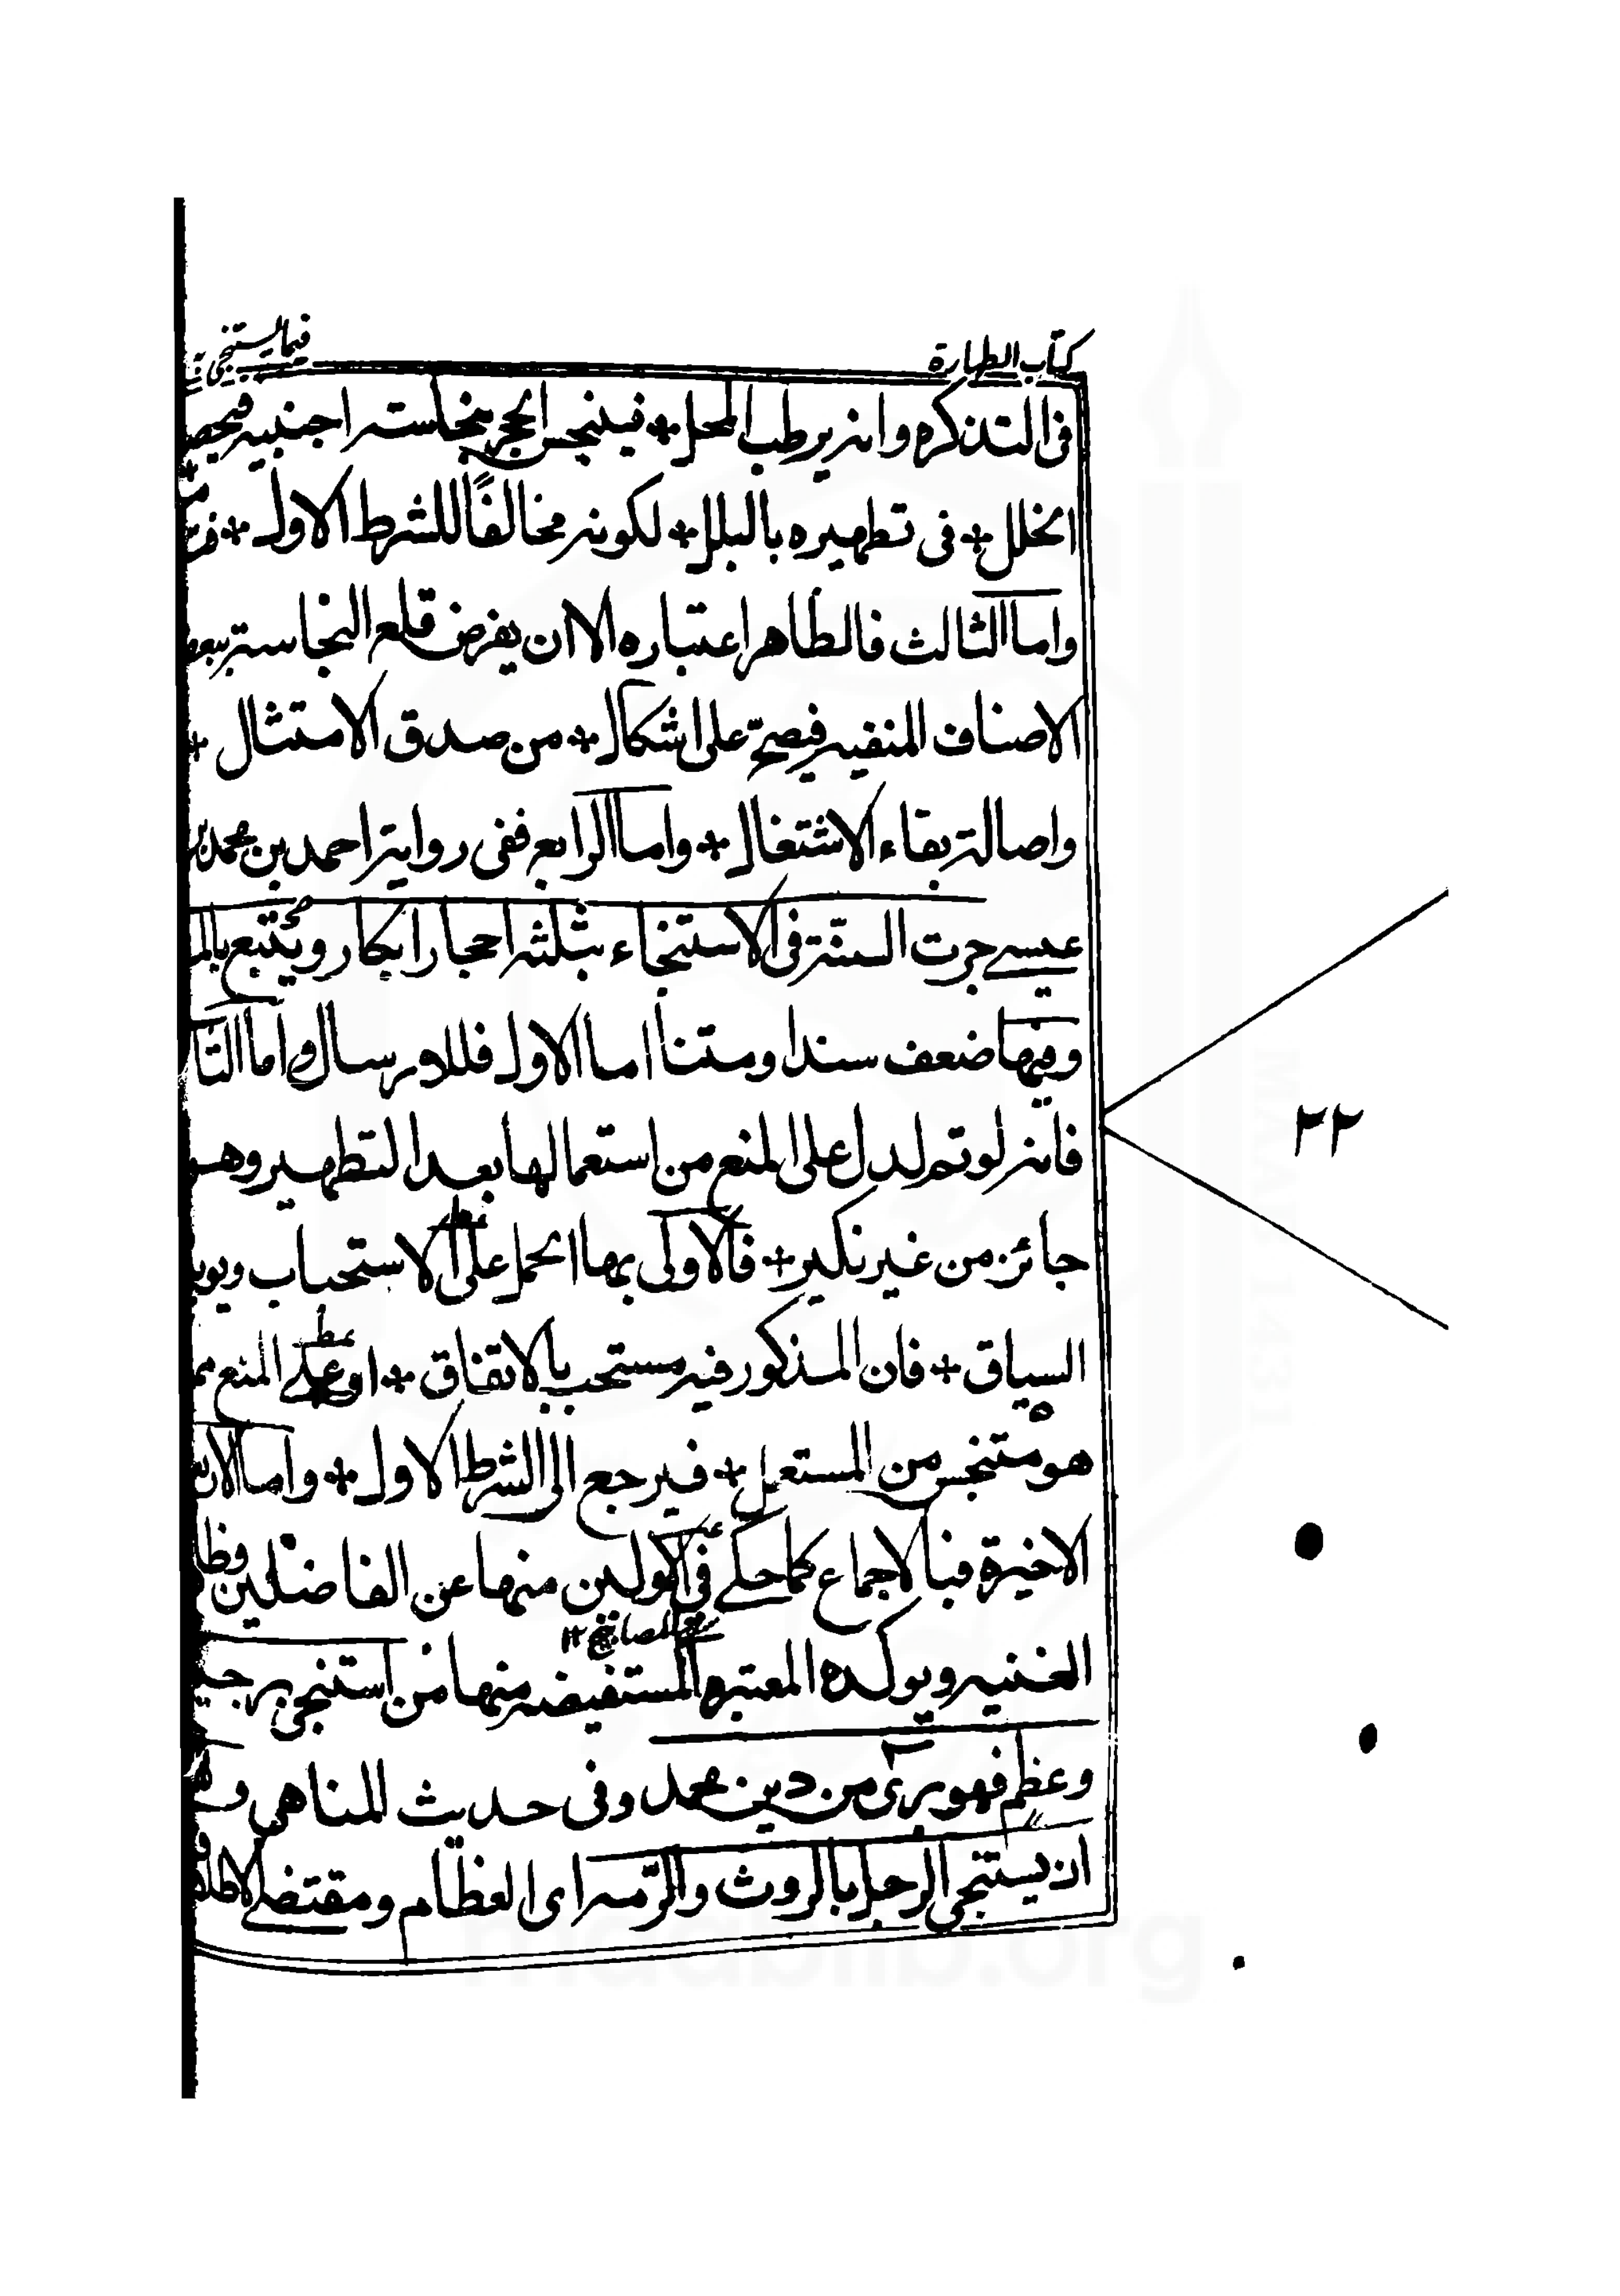 كتاب الطهارة
فيما يستنجى
فى التذكره وانه يرطب المحل * فينجس الحجر بنجاسته اجنبيه
الخلل * فى تطهيره بالبلل * لكونه مخالفًا للشرط الاول *
واما الثالث فالظاهر اعتباره الا ان يفرض قلع النجاسته
الاصناف المنفيه فيصحّ على اشكال * من صدق الامتثال *
واصالته بقاء الاشتغال * واما الرابع ففى روايته احمد بن محمد بن
عيسے جرت السنّته فى الاستنجاء بثلثه احجار ابكار ويُتبع
وفيها ضعف سندا ومتنا اما الاول فللارسال واما
فانه لو تم لدل على المنع من استعمالها بعد التطهير وهو
جائز من غير نكير * فالاولى بها الحمل على الاستحباب
السياق * فان المذكور فيه مستحب بالاتفاق * او علے المنع مما
هو متنجس من المستعمل * فيرجع الى الشرط الاول * واما
الاخيرة فبالاجماع كما حكے فى الاولين منها عن الفاضلين
الغنيه ويوكده المعتبره المستفيضه منها من استنجى برجيع
وعظم فهو برئ من دين محمد وفى حديث المناهى
ان يستنجى الرجل بالروث والرّمه اى العظام ومقتضے
٢٢
maablib.org
MAAB 1431